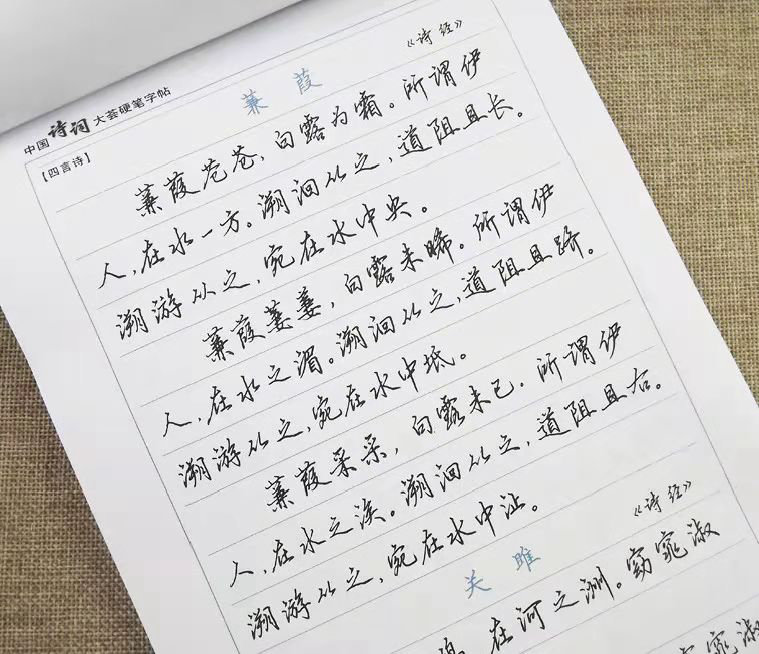 中国诗词大荟硬笔字帖
【四言诗】
蒹葭
《诗经》
蒹葭苍苍，白露为霜。所谓伊
人，在水一方。溯洄从之，道阻且长。
溯游从之，宛在水中央。
蒹葭萋萋，白露未晞。所谓伊
人，在水之湄。溯洄从之，道阻且跻。
溯游从之，宛在水中坻。
蒹葭采采，白露未已。所谓伊
人，在水之涘。溯洄从之，道阻且右。
溯游从之，宛在水中沚。
关雎
《诗经》
在河之洲。窈窕淑
窈窕淑